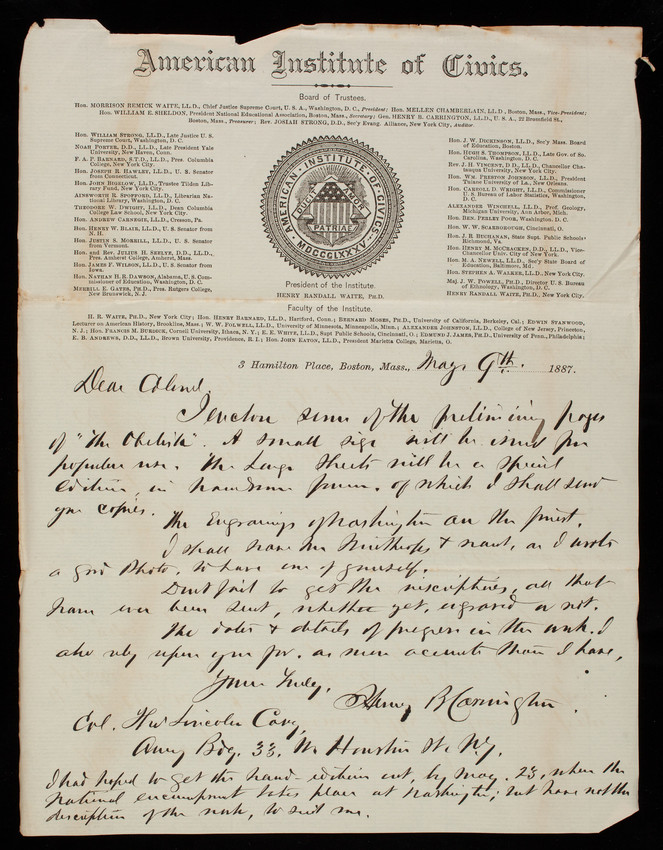 American Institute of Civics.
Board of Trustees.
Hon. MORRISON REMICK WAITE, LL.D., Chief Justice Supreme Court, U. S. A., Washington, D. C., President; Hon. MELLEN CHAMBERLAIN, LL.D., Boston, Mass., Vice-President;
Hon. WILLIAM E. SHELDON, President National Educational Association, Boston, Mass., Secretary; Gen. HENRY B. CARRINGTON, LL.D., U. S. A., 21 Bromfield St.,
Boston, Mass., Treasurer; Rev. JOSIAH STRONG, D.D., Sec'y Evang. Alliance, New York City, Auditor
Hon. WILLIAM STRONG, LL.D., Late Justice U. S.
Supreme Court, Washington, D. C.
NOAH PORTER, D.D., LL.D., Late President Yale
University, New Haven, Conn.
F. A. P. BARNARD, S.T.D., LL.D., Pres. Columbia
College, New York City.
Hon. JOSEPH R. HAWLEY, LL.D., U. S. Senator
from Connecticut.
Hon. JOHN BIGELOW, LL.D., Trustee Tilden Lib-
rary Fund, New York City.
AINSWORTH R. SPOFFORD, LL.D., Librarian Na-
tional Library, Washington, D. C.
THEODORE W. DWIGHT, LL.D., Dean Columbia
College Law School, New York City.
Hon. ANDREW CARNEGIE, LL.D., Cresson, Pa.
Hon. HENRY W. BLAIR, LL.D., U. S. Senator from
N. H.
Hon. JUSTIN S. MORRILL, LL.D., U. S. Senator
from Vermont.
Hon. and Rev. JULIUS H. SEELYE, D.D., LL.D.,
Pres. Amherst College, Amherst, Mass.
Hon. JAMES F. WILSON, LL.D., U. S. Senator from
Iowa.
Hon. NATHAN H. R. DAWSON, Alabama, U. S. Com-
missioner of Education, Washington, D. C.
MERRILL E. GATES, PH.D., Pres. Rutgers College,
New Brunswick, N. J.
AMERICAN · INSTITUTE · OF · CIVICS
DUCIT AMOR PATRIAE
MDCCCLXXXV
President of the Institute.
HENRY RANDALL WAITE, PH.D.
Hon. J. W. DICKINSON, LL.D., Sec'y Mass. Board
of Education, Boston.
Hon. HUGH S. THOMPSON, LL.D., Late Gov. of So.
Carolina, Washington, D. C.
Rev. J. H. VINCENT, D.D., LL.D., Chancellor Cha-
tauqua University, New York City.
Hon. WM. PRESTON JOHNSON, LL.D., President
Tulane University of La., New Orleans.
Hon. CARROLL D. WRIGHT, LL.D., Commissioner
U. S. Bureau of Labor Statistics, Washington,
D. C.
ALEXANDER WINCHELL, LL.D., Prof. Geology,
Michigan University, Ann Arbor, Mich.
Hon. BEN. PERLEY POOR, Washington, D. C.
Hon. W. W. SCARBOROUGH, Cincinnati, O.
Hon. J. R. BUCHANAN, State Supt. Public Schools
Richmond, Va.
Hon. HENRY M. MCCRACKEN, D.D., LL.D., Vice-
Chancellor Univ. City of New York.
Hon. M. A. NEWELL, LL.D., Sec'y State Board of
Education, Baltimore, Md.
Hon. STEPHEN A. WALKER, LL.D., New York City.
Maj. J. W. POWELL, PH.D., Director U. S. Bureau
of Ethnology, Washington, D. C.
HENRY RANDALL WAITE, PH.D., New York City.
Faculty of the Institute.
H. R. WAITE, PH.D., New York City; Hon. HENRY BARNARD, LL.D., Hartford, Conn.; BERNARD MOSES, PH.D., University of California, Berkeley, Cal.; EDWIN STANWOOD,
Lecturer on American History, Brookline, Mass.; W. W. FOLWELL, LL.D., University of Minnesota, Minneapolis, Minn.; ALEXANDER JOHNSTON, LL.D., College of New Jersey, Princeton,
N. J.; Hon. FRANCIS M. BURDICK, Cornell University, Ithaca, N. Y.; E. E. WHITE, LL.D., Supt Public Schools, Cincinnati, O.; EDMUND J. JAMES, PH.D., University of Penn., Philadelphia;
E. B. ANDREWS, D.D., LL.D., Brown University, Providence, R. I.; Hon. JOHN EATON, LL.D., President Marietta College, Marietta, O.
3 Hamilton Place, Boston, Mass., May 9th. 1887.
Dear Colonel,
I enclose some of the preliminary pages
of "The Obelisk". A small size will be issued for
popular use. The Large Sheets will be a special
Edition, in handsome form. of which I shall send
you copies.
The Engravings of Washington are the finest.
I shall have Mr Winthrop's & want, as I wrote
a good Photo. to have one of yourself.
Dont fail to get the inscriptions, all that
have ever been sent, whether yet engraved or not.
The dates & details of progress in the work. I
also rely upon you for. as more accurate than I have,
Yours Truly,
Henry B Carrington.
Col. Thos Lincoln Casey,
Army Bdg. 33. W Houston St. N.Y.
I had hoped to get this hand-edition out, by May. 23, when the
National encampment takes place at Washington; but have not the
description of the work, to suit me.